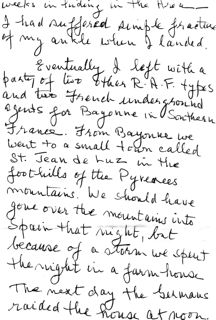 weeks in hiding in the Area—
I had suffered simple fracture
of my ankle when I landed.
Eventually I left with a
party of two other R.A.F. types
and two French underground
agents for Bayonne in Southern
France. From Bayonne we
went to a small town called
St. Jean de Luz in the
foothills of the Pyrenees
mountains. We should have
gone over the mountains into
Spain that night, but
because of a storm we spent
the night in a farm house
The next day the Germans
raided the house at noon